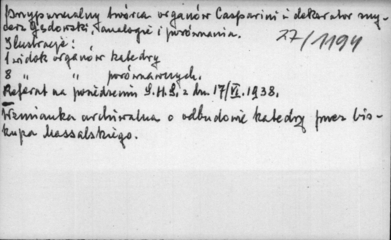 Przypuszczalny twórca organów Casparini i dekorator sny-
cerz Gędowski, analogie i porównania.
27/1194
Ilustracje:
1 widok organów katedry
8 " " porównawczych.
Referat na posiedzeniu S.H.S. z dn. 17/VI.1938.
Wzmianka archiwalna o odbudowie katedry przez bis-
kupa Massalskiego.